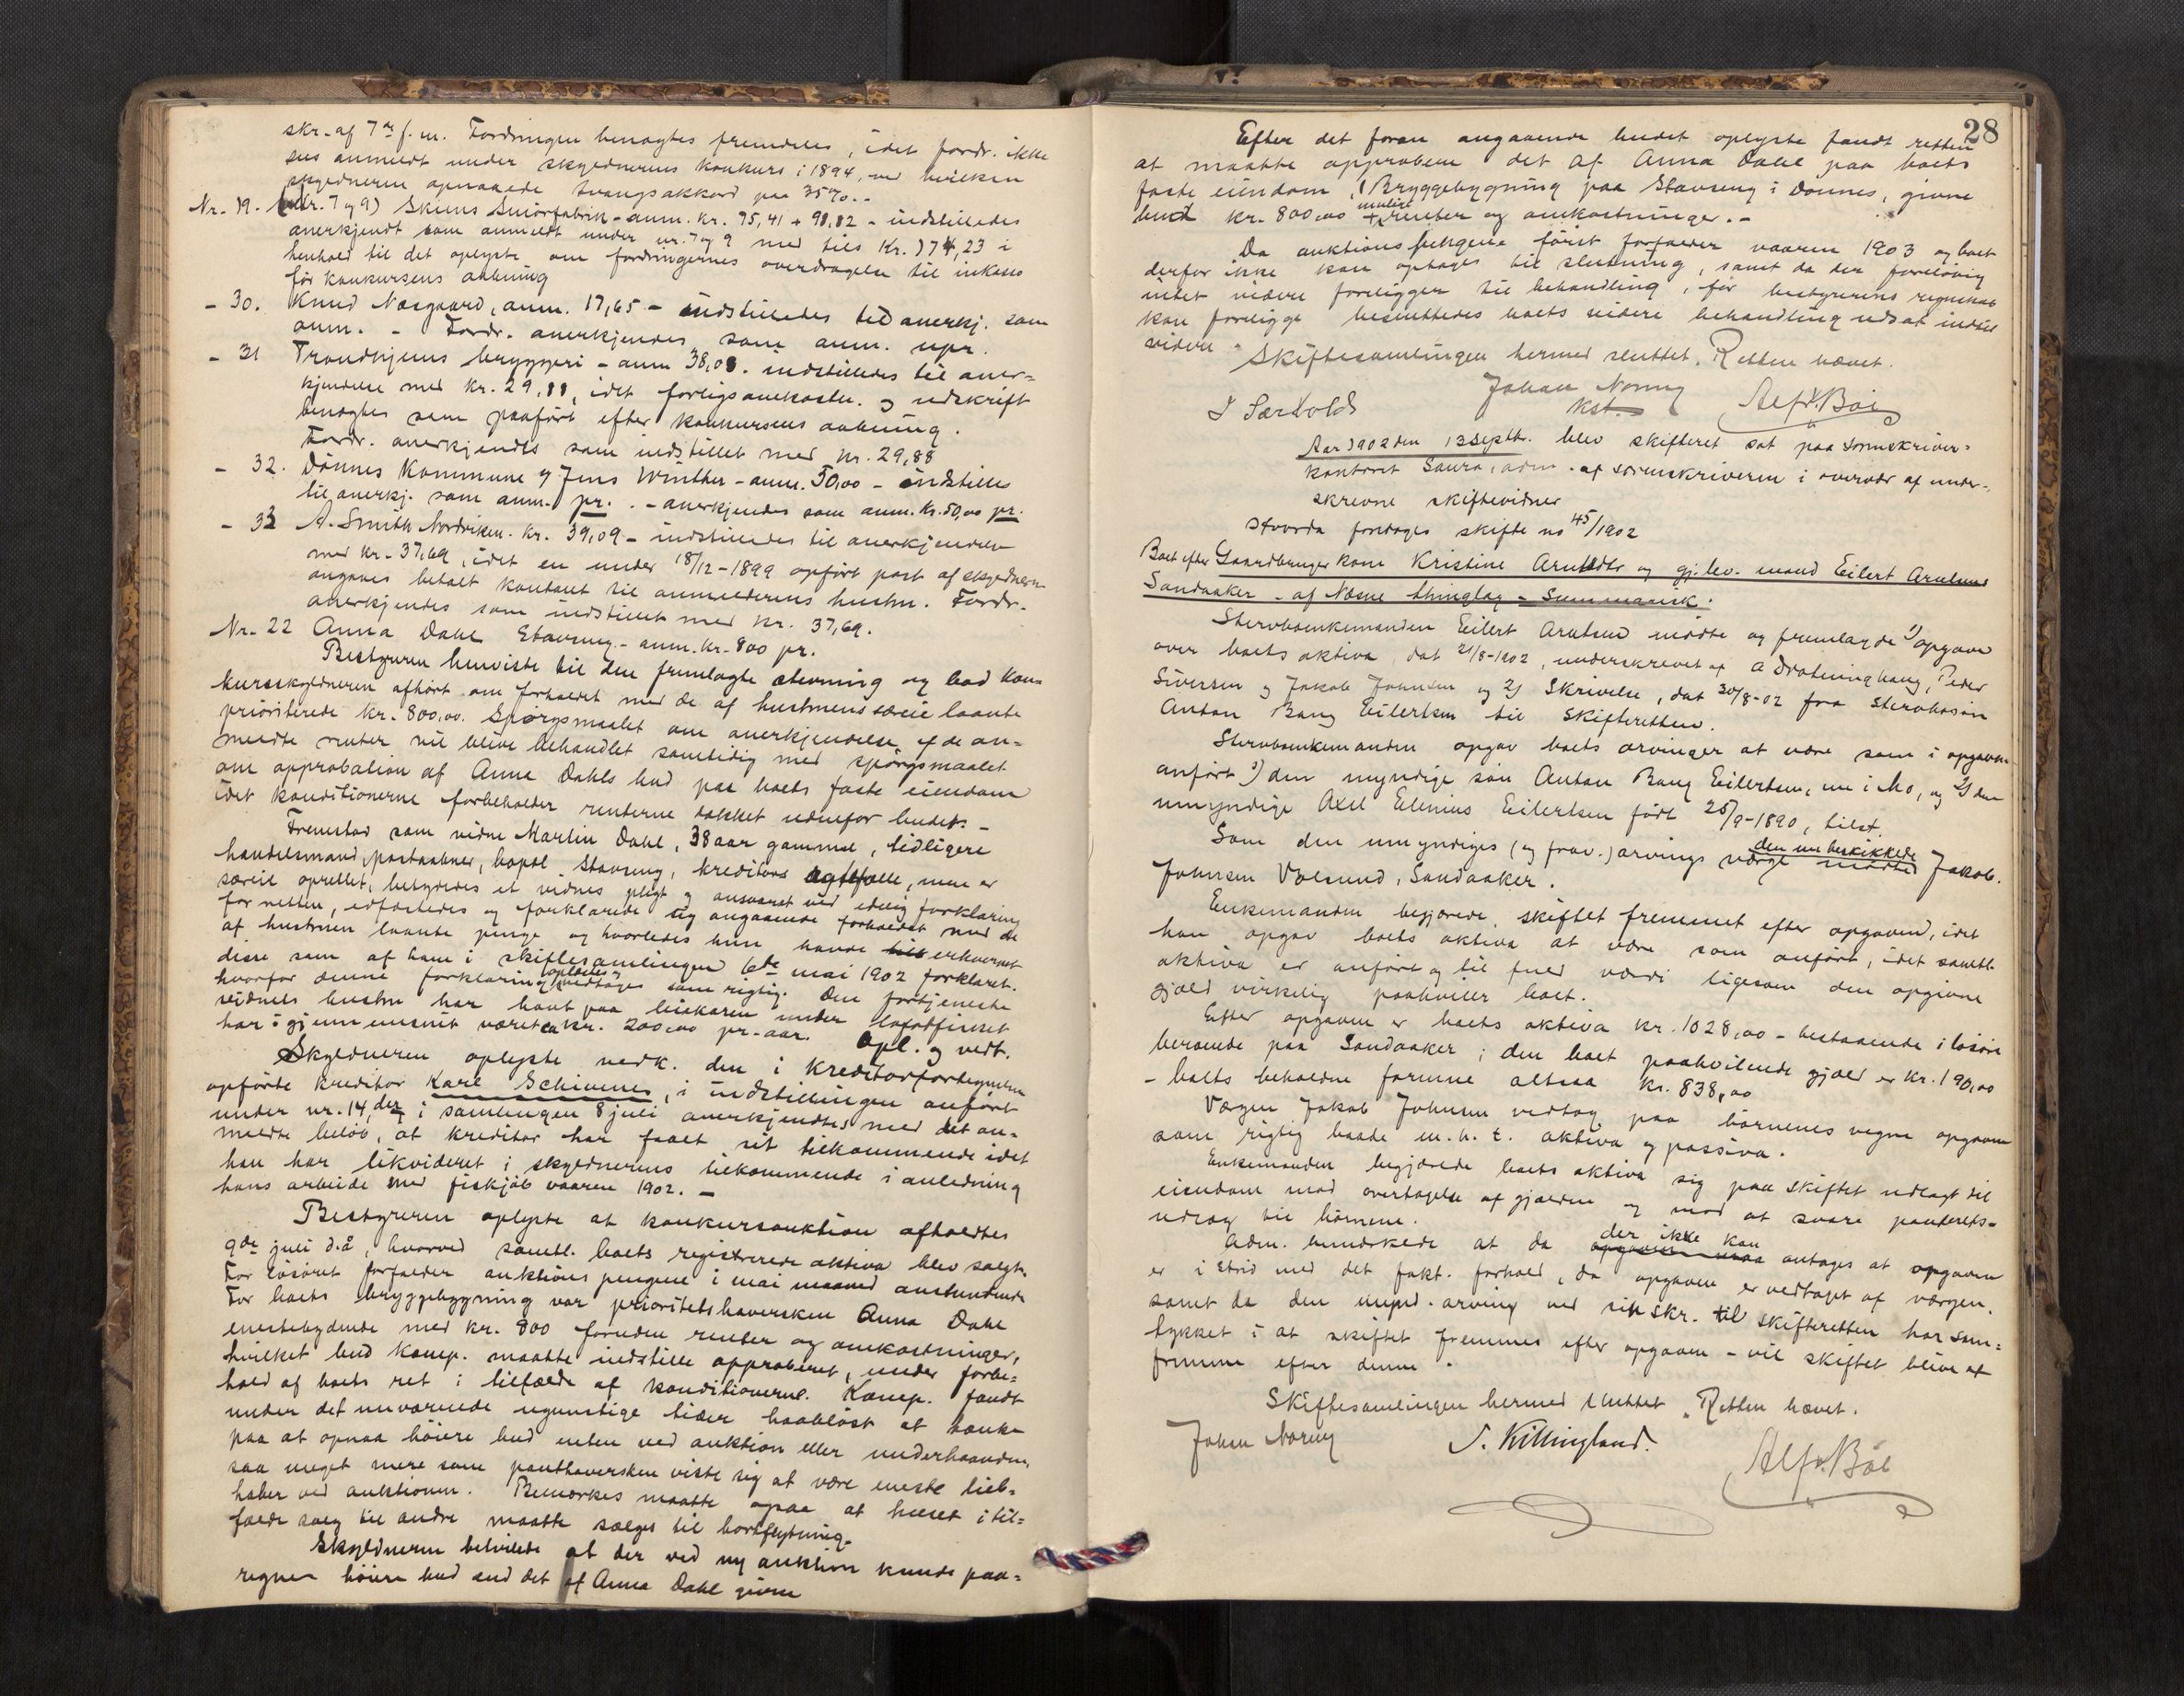 skr. af 7de f. m. Fordringen benægtes fremdeles, idet fordr. ikke
sees anmeldt under skyldnerens konkurs i 1894, ved hvilken
skyldneren opnaaede tvangsakkord paa 35%.-
Nr. 19. (Nr. 7 og 9) Skiens Smörfabrik - anm. kr. 75,41 + 98,82 - indstilledes
anerkjendt som anmeldt under nr. 7 og 9 med tils kr. 174,23 i
henhold til det oplyste om fordringernes overdragelse til inkasso
för konkursens aabning
- 30. Knud Næsgaard, anm. 17,65 - indstilledes til anerkj. som
anm. - Fordr. anerkjendes som anm. upr.
- 31 Trondhjems bryggeri - anm 38,08. indstilledes til aner=
kjendelse med kr. 29,88, idet forligsomkostn. og udskrift
benægtes som paafört efter konkursens aabning.
Fordr. anerkjendes som indstillet med kr. 29,88
- 32. Dönnes Kommune og Jens Winther - anm. 50,00 - indstilles
til anerkj. som anm. pr. - anerkjendes som anm. kr. 50,00 pr.
- 33 A. Smith Nordviken. kr. 39,09 - indstilledes til anerkjendelse
med kr. 37,69, idet en under 18/12-1899 opfört post af skyldneren
angaves betalt kontant til anmelderens hustru. Fordr.
anerkjendes som indstillet med kr. 37,69.
Nr. 22 Anna Dahl Stavseng. - anm. kr. 800 pr.
Bestyreren henviste til den fremlagte stevning og bad kon=
kursskyldneren afhört om forholdet med de af hustruens særeie laante
prioriterede kr. 800,00. Spörgsmaalet om anerkjendelse af de an=
meldte renter vil blive behandlet samtidig med spörgsmaalet
om approbation af Anna Dahls bud paa boets faste eiendom
idet konditionerne forbeholder renterne dækket udenfor budet. -
Fremstod som vidne Martin Dahl, 38 aar gammel, tidligere
handelsmand, postaabner, bopæl Stavseng, kreditors ægtefælle, men er
særeie oprettet, betydedes et vidnes pligt og ansvaret ved edelig forklaring
for retten, edfæstedes og forklarede sig angaaende forholdet med de
af hustruen laante penge og hvorledes hun havde erhvervet
disse som af ham i skiftesamlingen 6te mai 1902 forklaret.
hvorfor denne forklaring oplæstes og vedtoges som rigtig. Den fortjeneste
vidnets hustru har havt paa under lofotfisket
har i gjennemsnit været ca kr. 200,00 pr. aar. Opl. og vedt.
Skyldneren oplyste vedk. den i kreditorfortegnelsen
opförte kreditor Karl Schivenes, i indstillingen anfört
under nr. 14, der i samlingen 8 juli anerkjendtes med det an=
meldte belöb, at kreditor har faaet sit tilkommende idet
han har likvideret i skyldnerens tilkommende i anledning
hans arbeide med fiskjöb vaaren 1902. -
Bestyreren oplyste at konkursauktion afholdtes
9de juli d.å., hvorved samtl. boets registrerede aktiva blev solgt.
For lösöret forfalder auktionspengene i mai maaned anstundende
For boets bryggebygning var prioritetshaversken Anna Dahl
enestebydende med kr. 800 foruden renter og omkostninger,
hvilket bud komp. maatte indstille approberet, under forbe=
hold af boets ret i tilfælde af konditionerne. Komp. fandt
under det nuværende ugunstige tider haablöst at tænke
paa at opnaa höiere bud enten ved auktion eller underhaanden,
saa meget mere som panthaversken viste sig at være eneste lieb=
haber ved auktionen. Bemærkes maatte ogsaa at huset i til=
fælde salg til andre maatte sælges til bortflytning.
Skyldneren betvilede at der ved ny auktion kunde paa=
regnes höiere bud end det af Anna Dahl givne
28
Efter det foran angaaende budet oplyste fandt retten
at maatte approbere det af Anna Dahl paa boets
faste eiendom, (Bryggebygning paa Stavseng i Dönnes, givne
bud kr. 800,00 + mulige renter og omkostninger. -
Da auktionspengene först forfalder vaaren 1903 og boet
derfor ikke kan optages til slutning, samt da der forelöbig
intet videre foreligger til behandling, för bestyrerens regnskab
kan foreligge besluttedes boets videre behandling udsat indtil
videre.
Skiftesamlingen hermed sluttet. Retten hævet.
Johan Norny
I Særvold kst. Alfr. Böe
Aar 1902 den 12 septbr. blev skifteret sat paa sorenskriver=
kontoret Saura, adm. af sorenskriveren i overvær af under=
skrevne skiftevidner
Hvorda foretoges skifte no 45/1902
Boet efter Gaardbruger kone Kristine Arntsdtr og gj.lev. mand Eilert Arntsens
Sandaaker - af Næsne thinglag - Summarisk.
Stervboenkemanden Eilert Arntsen mödte og fremlagde 1) opgave
over boets aktiva, dat 21/8-1902, underskrevet af A Dróttninghaug, Peder
Sivertsen og Jakob Johnsen og 2) Skrivelse, dat 30/8-02 fra Stervbosön
Anton Bang Eilertsen til Skifteretten.
Stervboenkemanden opgav boets arvinger at være som i opgaven
anfört 1) den myndige sön Anton Bang Eilertsen, nu i Mo, og 2) den
umyndige Axel Elenius Eilertsen född 25/9-1890, tilst.
Som den umyndiges (og frav.) arvings værge mödte den nu beskikkede Jakob
Johnsen Volsund, Sandaaker.
Enkemanden begjærede skiftet fremmet efter opgaven, idet
han opgav boets aktiva at være som anfört, idet samtl.
aktiva er anfört og til fuld værdi ligesom den opgivne
gjæld virkelig paahviler boet.
Efter opgaven er boets aktiva kr. 1028,00 - bestaaende i lösöre
beroende paa Sandaaker; den boet paahvilende gjæld er kr. 190,00
- boets beholdne formue altsaa kr. 838,00
Værgen Jakob Johnsen vedtog paa börnenes vegne opgaven
som rigtig baade m. h. t. aktiva og passiva.
Enkemanden begjærede boets aktiva sig paa skiftet udlagt til
eiendom mod overtagelse af gjælden og mod at svare panterets=
udlæg til börnene.
Adm. bemærkede at da der ikke kan antages at opgaven
er i strid med det fakt. forhold, da opgaven er vedtaget af værgen,
samt da den mynd. arving ved sin skr. til skifteretten har sam=
tykket i at skiftet fremmes efter opgaven - vil skiftet blive at
fremme efter denne.
Skiftesamlingen hermed sluttet. Retten hævet.
Johan Norny J. Killingland. Alfr. Böe